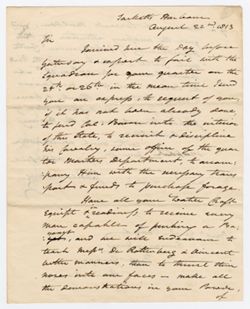 Sacketts Harbour
August 22nd, 1813
Sir
I arrived here the day before
yesterday & expect to sail with the
Squadron for your quarter on the
24th or 26th in the mean time I send
you an express, to request of you
if it has not been already done
to ford Col: into the interior
of the State, to recruit & discipline
his Cavalry, some officer of the quar
ter Masters Department, to accom
pany Him with the necessary trans
port & funds to purchase forage
Have all your Water Craft
Equipt & in readiness to receive every
man capable of pushing a Ba
yonet, and we will endeavour to
teach Messrs De Rottenburg &
better manners, than to thrust their
noses into our faces — make all
the demonstrations in your Power,
of